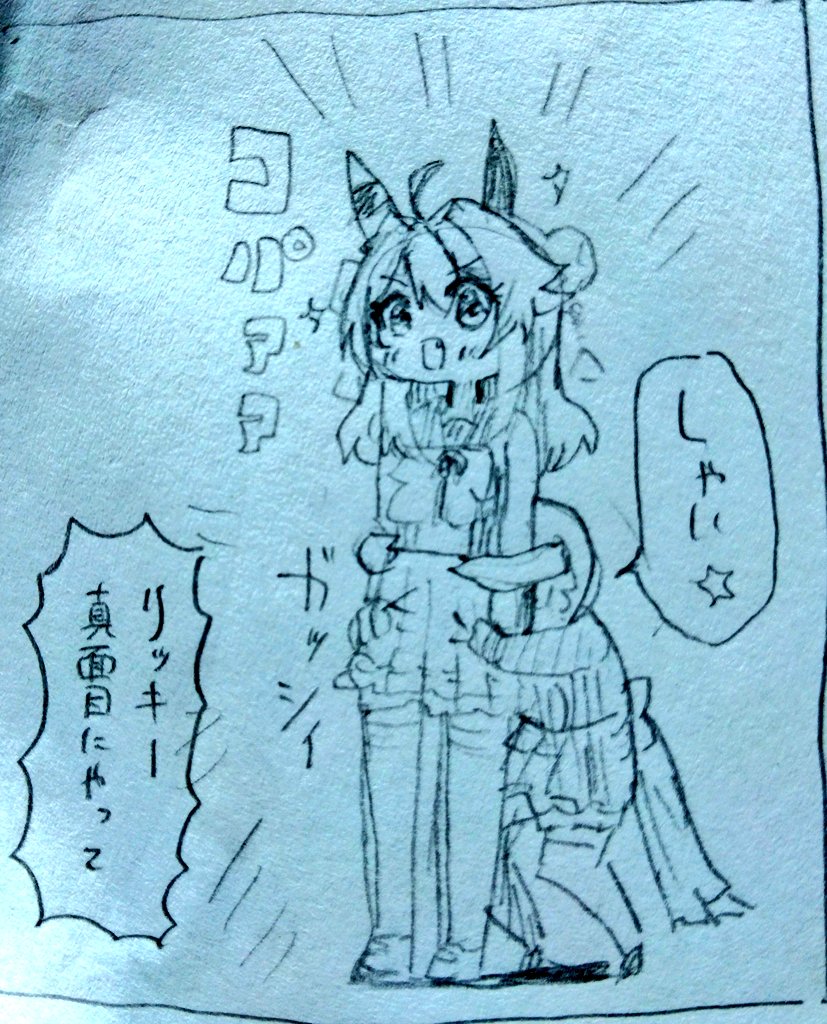 しゃに☆
コパァァ
ガッシィ
リッキー
真面目にやって